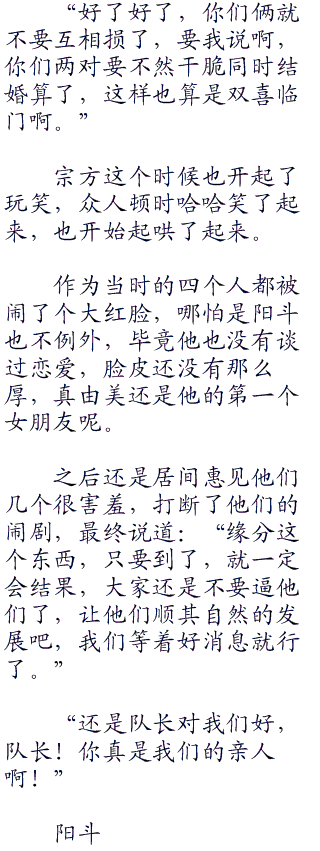 “好了好了，你们俩就
不要互相损了，要我说啊，
你们两对要不然干脆同时结
婚算了，这样也算是双喜临
门啊。”
宗方这个时候也开起了
玩笑，众人顿时哈哈笑了起
来，也开始起哄了起来。
作为当时的四个人都被
闹了个大红脸，哪怕是阳斗
也不例外，毕竟他也没有谈
过恋爱，脸皮还没有那么
厚，真由美还是他的第一个
女朋友呢。
之后还是居间惠见他们
几个很害羞，打断了他们的
闹剧，最终说道：“缘分这
个东西，只要到了，就一定
会结果，大家还是不要逼他
们了，让他们顺其自然的发
展吧，我们等着好消息就行
了。”
“还是队长对我们好，
队长！你真是我们的亲人
啊！”
阳斗